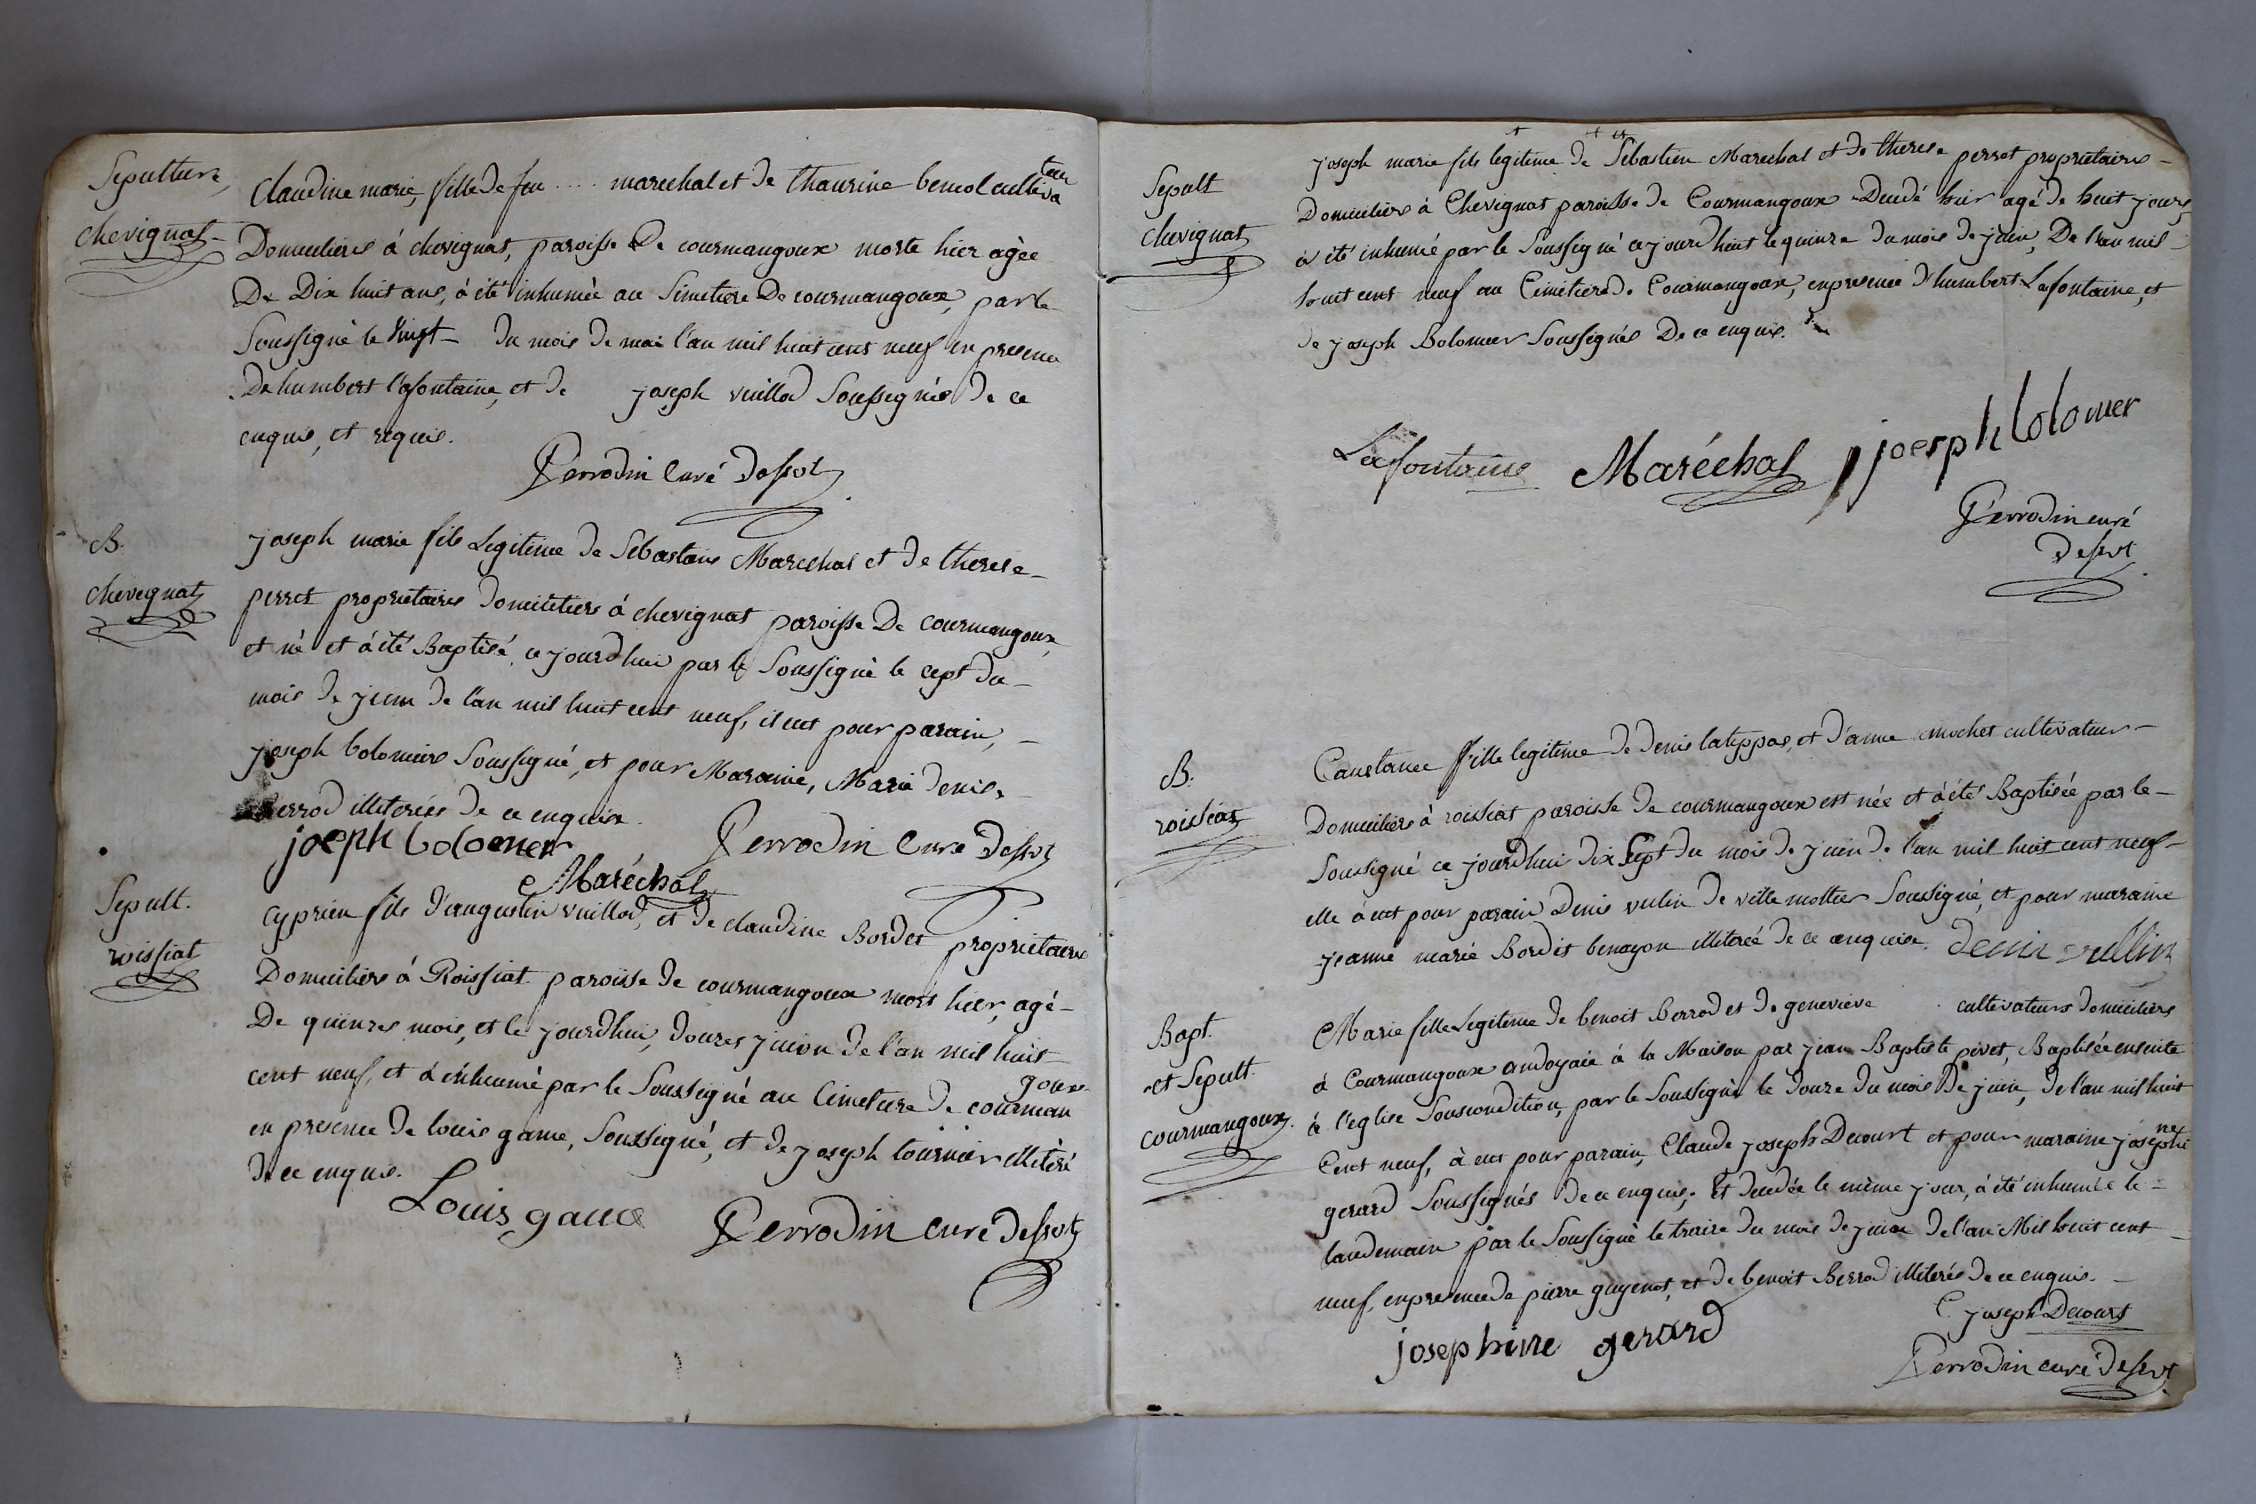 Sepulture
chevignat
Claudine marie, fille de feu .... marechal et de thaurine benol cultivateur
Domiciliés à chevignat, paroisse De courmangoux morte hier agèe
De Dix huit ans, à été inhumèe au Simetiere De courmangoux, par le
Soussigné le Vingt - du mois de mai l'an mil huit cent neuf en presence
De humbert lafontaine, et de joseph vuillod Soussignés De ce
enquis, et requis.
Perrodin Curé Desservt
B.
chevignat
joseph marie fils Legitime de Sebastien Marechal et de therese -
perret proprietaires domiciliers á chevignat paroisse De courmangoux
et né et á été Baptisé ce jourdhui par le Soussigné le cept du -
mois de juin de l'an mil huit cent neuf, il eut pour parain, -
joseph bolomier Soussigné, et pour Maraine, Marie denise
Berrod illiterées de ce enquise.
joseph bolomer
Maréchal
Perrodin Curé Desservt
Sepult.
roissiat
cyprien fils d'augustin vuillod, et de claudine Bordet proprietaires
Domiciliers á Roissiat paroisse de courmangoux mort hier, agé -
De quinzes mois, et le jourdhui, douzes juion de l'an mil huit
cent neuf, et á étinhumé par le Soussigné au Cimetiere de courmangoux
en presence de louis game, Soussigné, et de joseph tournier illiteré
de ce enquis.
Louis game
Perrodin curé desservt
Sepult
chevignat
joseph marie fils legitime de Sebastien Marechal et de therese perret proprietaires -
Domiciliers à Chevignat paroisse de Courmangoux Decedé hier agé de huit jours,
à été inhumé par le Soussigné ce jourd huit le quinze du mois de juin, De l'an mil -
huit cent neuf au Cimetiere de Courmangoux, en presence d'humbert Lafontaine, et
de joseph Bolomier Soussignés De ce enquis.
Lafontaine Maréchal joesph bolomer
Perrodin curé
Desservt
B.
roissiat
Constance fille legitime de denis lateppas, et d'anne mochet cultivateur -
Domiciliers à roissiat paroisse de courmangoux est née et à été Baptisée par le -
Soussigné ce jourdhui dix Sept du mois de juin de l'an mil huit cent neuf -
elle à eut pour parain Denis vulin de ville mottier Soussigné, et pour maraine
jeanne marie Bordet benayon illiterée de ce enquise. denis vullin
Bapt.
et Sepult.
courmangoux.
Marie fille Legitime de benoit Berrod et de genevieve cultivateurs domiciliers
à Courmangoux andoyaée à la Maison par jean Baptiste pivet, Baptisée ensuite
à l'eglise Souscondition, par le Soussigné le douze du mois De juin, de l'an mil huit
Cent neuf, à eut pour parain, Claude joseph Decourt et pour maraine josephine
gerard Soussignés de ce enquis. Et decedée le même jour, à été inhumée le -
landemain par le Soussigné le traize du mois de juin de l'an Mil huit cent -
neuf, en presence de pierre guyenot, et de benoit Berrod illiterés de ce enquis. -
C joseph Decourt
josephine gerard
Perrodin curé desservt